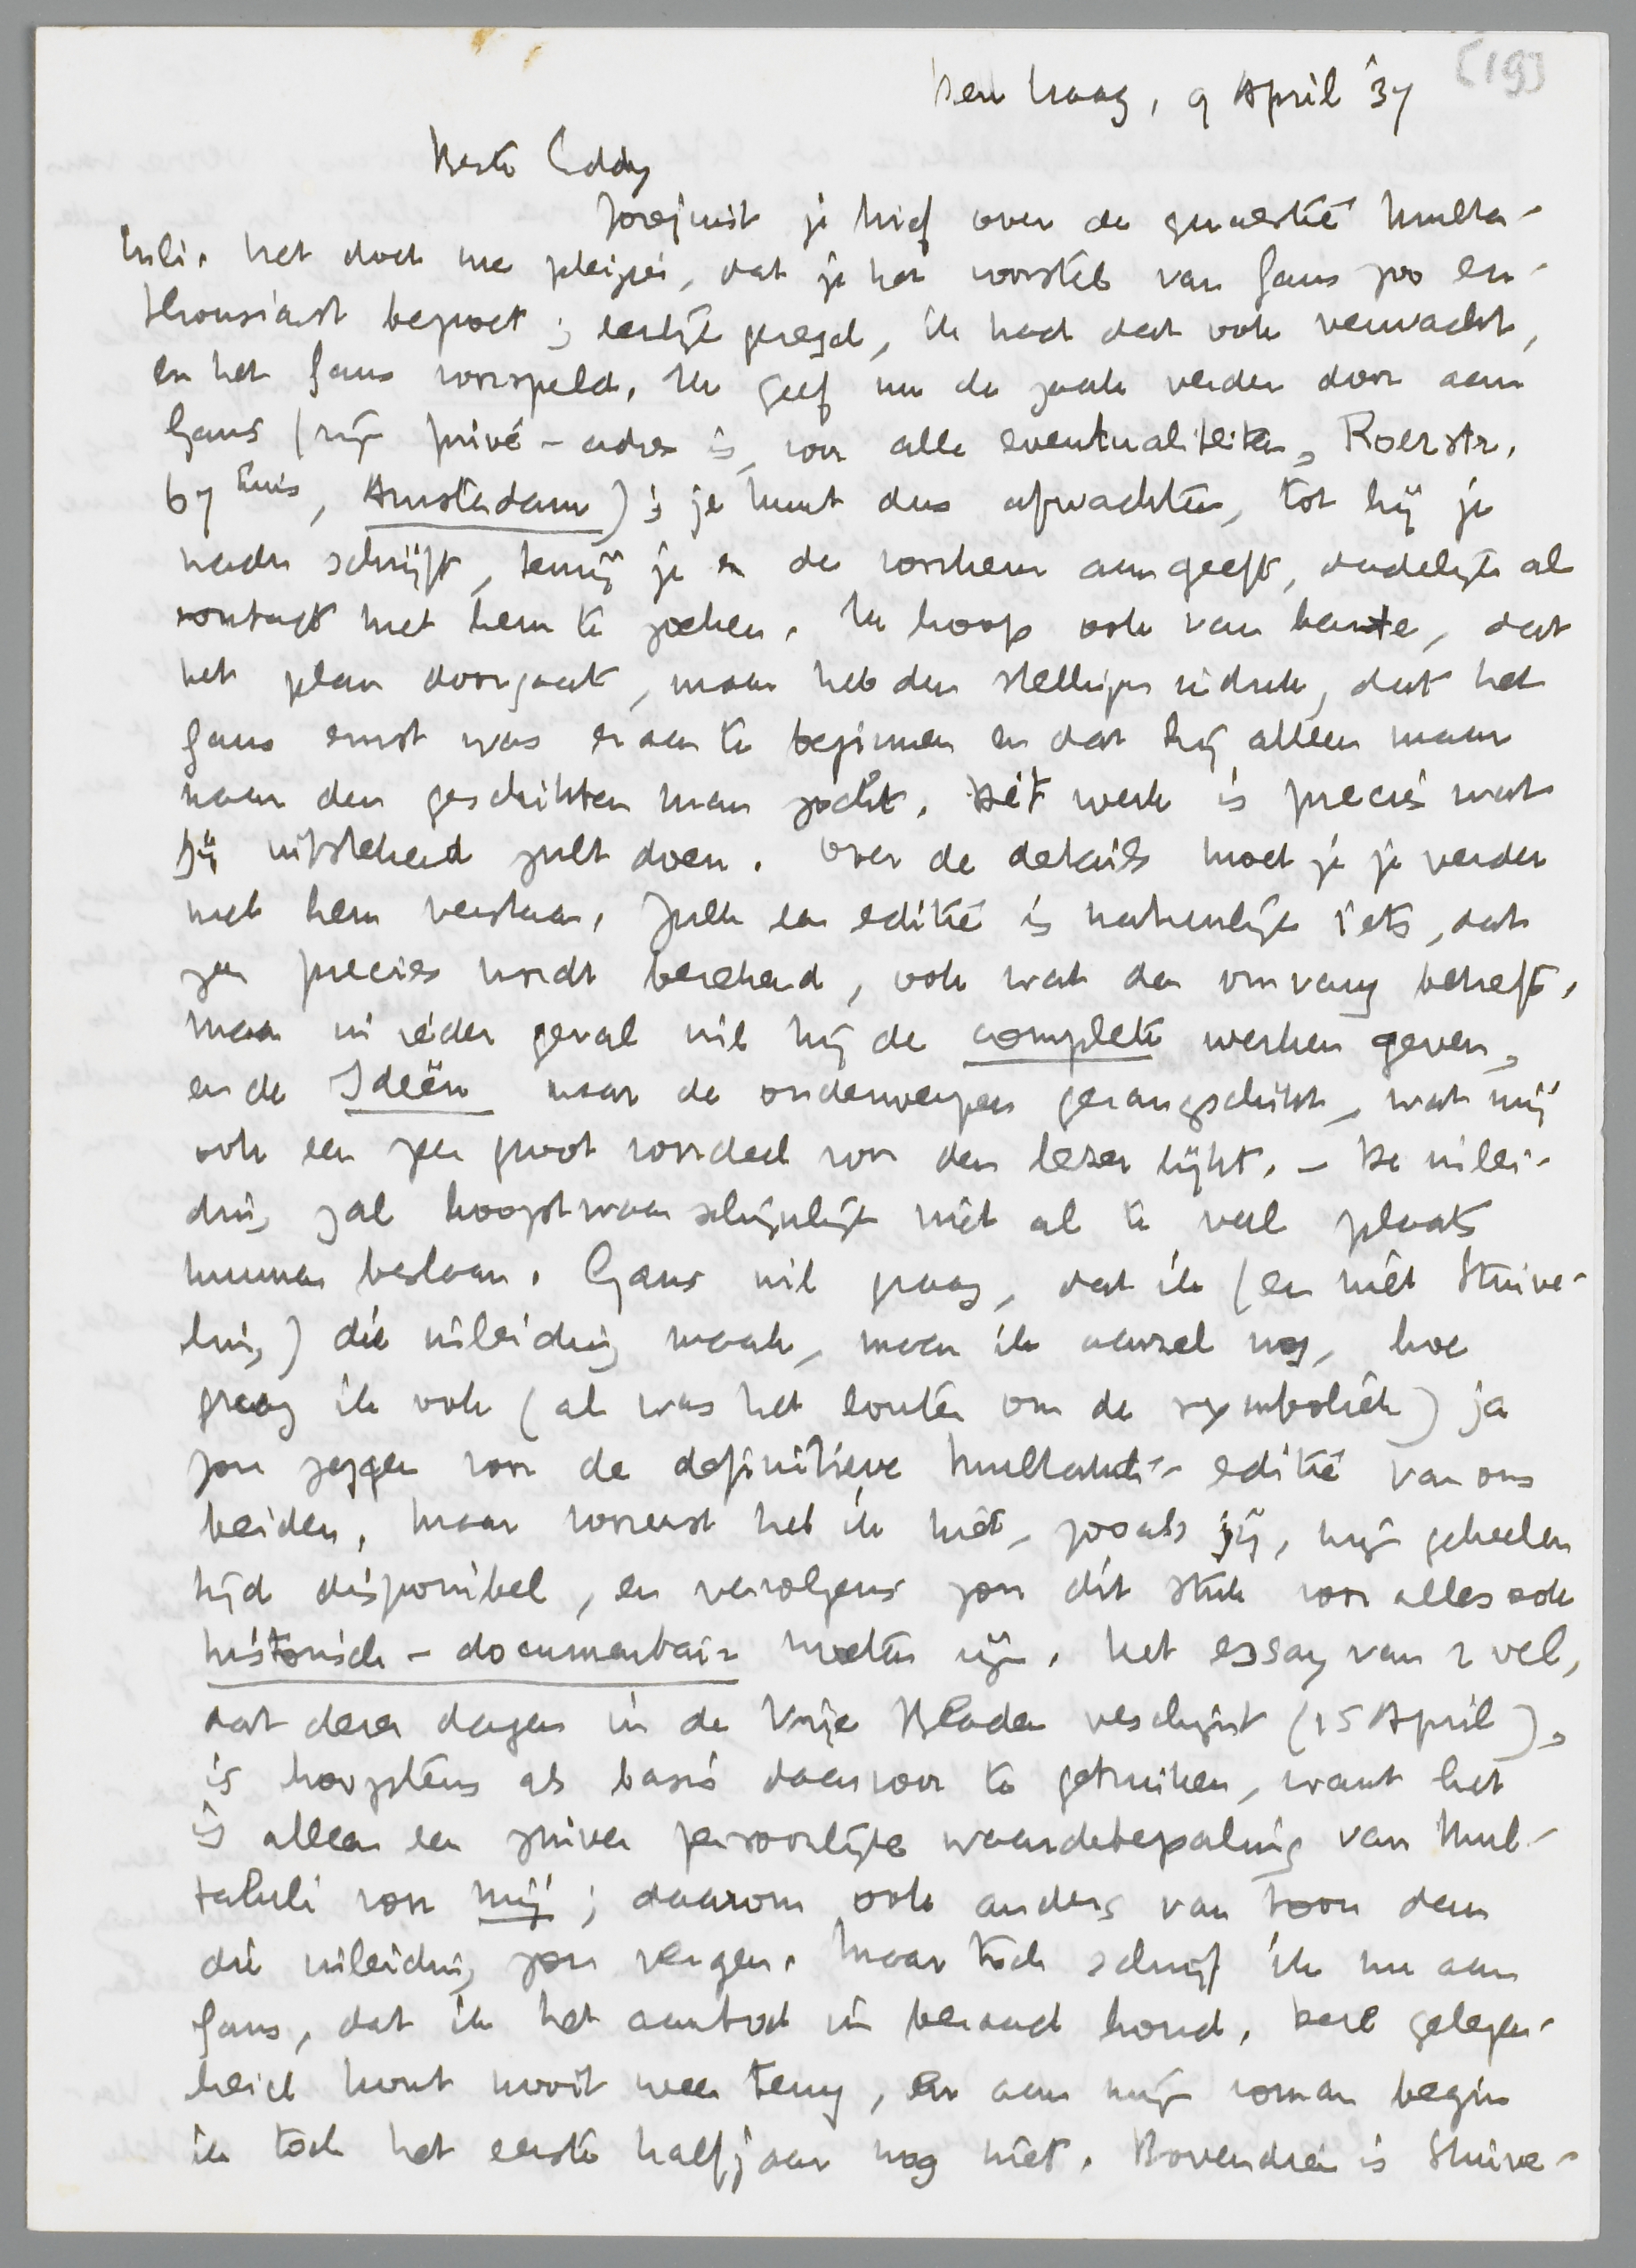 [19]
Den Haag, 9 April '37
Beste Eddy
Zoojuist je brief over de quaestie Multa-
tuli. Het doet me pleizier, dat je het voorstel van Gans zoo en-
thousiast begroet; eerlijk gezegd, ik had dat ook verwacht,
en het Gans voorspeld. Ik geef nu de zaak verder door aan
Gans (zijn privé-adres is, voor alle eventualiteiten, Roerstr.
67 huis, Amsterdam); je kunt dus afwachten, tot hij je
nader schrijft, tenzij je er de voorkeur aan geeft, dadelijk al
contact met hem te zoeken. Ik hoop ook van harte, dat
het plan doorgaat, maar heb den stelligen indruk, dat het
Gans ernst was eraan te beginnen en dat hij alleen maar
naar den geschikten man zocht. Dít werk is precies wat
jij uitstekend zult doen. Over de details moet je je verder
met hem verstaan. Zulk een editie is natuurlijk iets, dat
zeer precies wordt berekend, ook wat den omvang betreft,
maar in ieder geval wil hij de complete werken geven,
en de Ideën naar de onderwerpen gerangschikt, wat mij
ook een zeer groot voordeel voor den lezer lijkt. - De inlei-
ding zal hoogstwaarschijnlijk niet al te veel plaats
kunnen beslaan. Gans wil graag, dat ik (en niet Stuive-
ling) die inleiding maak, maar ik aarzel nog, hoe
graag ik ook (al was het louter om de symboliek) ja
zou zeggen voor de definitieve Multatuli-editie van ons
beiden. Maar vooreerst heb ik niet, zooals jij, mijn geheelen
tijd disponibel, en vervolgens zou dit stuk voor alles ook
historisch-documentair moeten zijn. Het essay van 2 vel,
dat dezer dagen in de Vrije Bladen verschijnt (15 April),
is hoogstens als basis daarvoor te gebruiken, want het
is alleen een zuiver persoonlijke waardebepaling van Mul-
tatuli voor mij; daarom ook anders van toon dan
die inleiding zou vergen. Maar toch schrijf ik nu aan
Gans, dat ik het aanbod in beraad houd. Deze gelegen-
heid komt nooit weer terug, en aan mijn roman begin
ik toch het eerste halfjaar nog niet. Bovendien is Stuive-